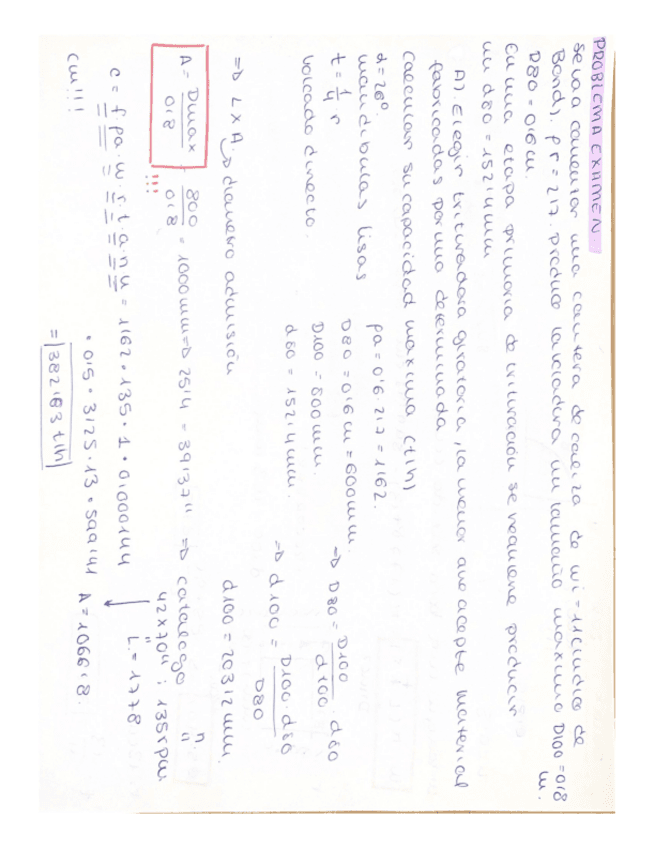 PROBLEMA EXAMEN.
Se va a cementar una cantera de caliza de wi = 11 (indice de
Bond). pr = 2'7. Produce la voladura un tamaño maximo D100 = 0'8 m.
D80 = 0'6 cm.
En una etapa primaria de trituración se requiere producir
un d80 = 152'4 mm
A). Elegir trituradora giratoria, la menor que acepte material
fabricadas por uno determinada
Calcular su capacidad maxima (t/h)
α = 26º.
mandibulas lisas
t = 1/4 r
volcado directo.
pa = 0'6 · 2'7 = 1'62.
D80 = 0'6 cm = 600 mm.
D100 = 800 mm.
d80 = 152'4 mm.
=> D80 = D100/d100 · d80
=> d100 = D100 · d80/D80
d100 = 203'2 mm.
=> L x A -> diametro admisión
A = Dmax/0'8 · 800/0'8 = 1000 mm => 25'4 = 39'37" => Catalogo
!!!
42" x 70" ; 135 rpm
L = 1778
A = 1066'8.
c = f · pa · w · s · t · a · n · u = 1'62 · 135 · 1 · 0'000144
· 0'5 · 3'25 · 13 · 599'41
= 382'63 t/h
cm!!!